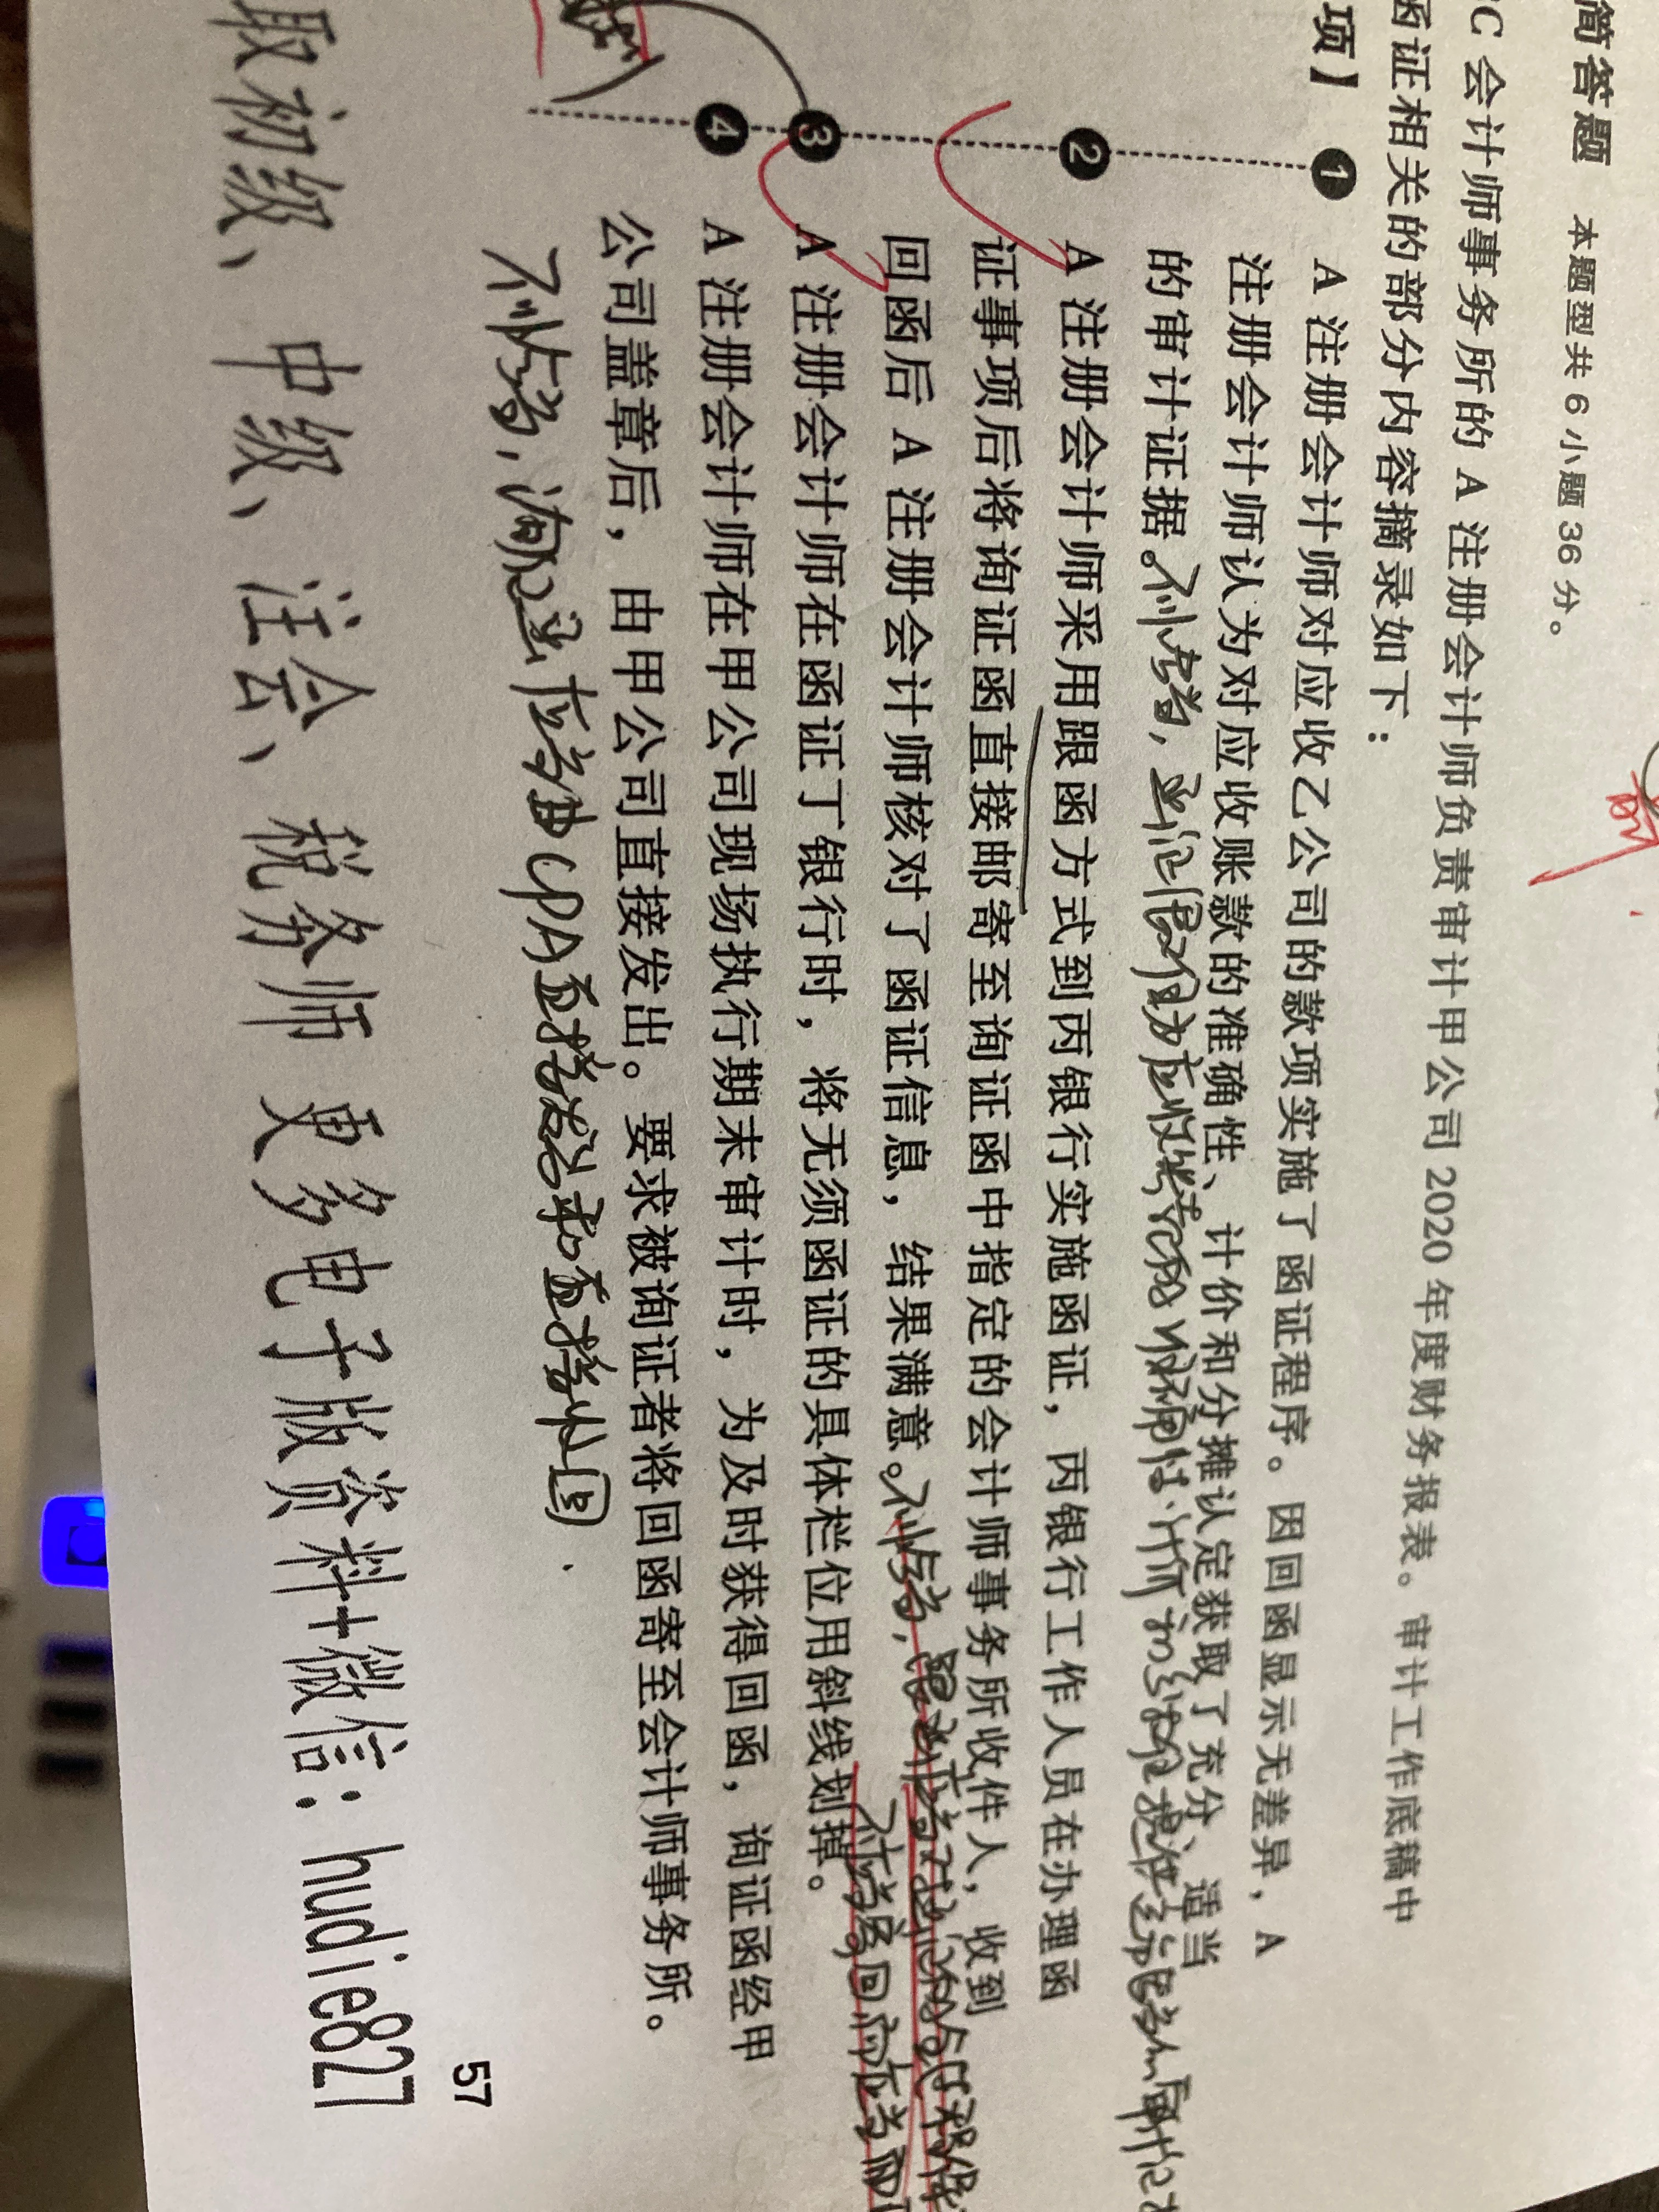 简答题 本题型共 6 小题 36 分。
C 会计师事务所的 A 注册会计师负责审计甲公司 2020 年度财务报表。审计工作底稿中
函证相关的部分内容摘录如下:
项】
1 A 注册会计师对应收乙公司的款项实施了函证程序。因回函显示无差异,A
注册会计师认为对应收账款的准确性、计价和分摊认定获取了充分、适当
的审计证据。不恰当,函证不能为应收账款的准确性、计价和分摊认定提供充分适当审计证
2 A 注册会计师采用跟函方式到丙银行实施函证,丙银行工作人员在办理函
证事项后将询证函直接邮寄至询证函中指定的会计师事务所收件人,收到
回函后 A 注册会计师核对了函证信息,结果满意。不恰当,
3 A 注册会计师在函证丁银行时,将无须函证的具体栏位用斜线划掉。
4 A 注册会计师在甲公司现场执行期末审计时,为及时获得回函,询证函经甲
公司盖章后,由甲公司直接发出。要求被询证者将回函寄至会计师事务所。
不恰当,询证函应当由CPA直接发出和直接收回.
57
取初级、中级、注会、税务师 更多电子版资料+微信:hudie827